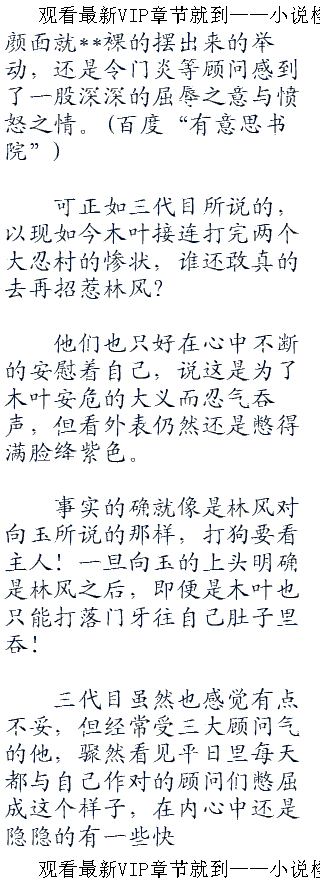 观看最新VIP章节就到——小说
颜面就**裸的摆出来的举
动，还是令门炎等顾问感到
了一股深深的屈辱之意与愤
怒之情。(百度“有意思书
院”)
可正如三代目所说的，
以现如今木叶接连打完两个
大忍村的惨状，谁还敢真的
去再招惹林风？
他们也只好在心中不断
的安慰着自己，说这是为了
木叶安危的大义而忍气吞
声，但看外表仍然还是憋得
满脸绛紫色。
事实的确就像是林风对
向玉所说的那样，打狗要看
主人！一旦向玉的上头明确
是林风之后，即便是木叶也
只能打落门牙往自己肚子里
吞！
三代目虽然也感觉有点
不妥，但经常受三大顾问气
的他，骤然看见平日里每天
都与自己作对的顾问们憋屈
成这个样子，在内心中还是
隐隐的有一些快
观看最新VIP章节就到——小说